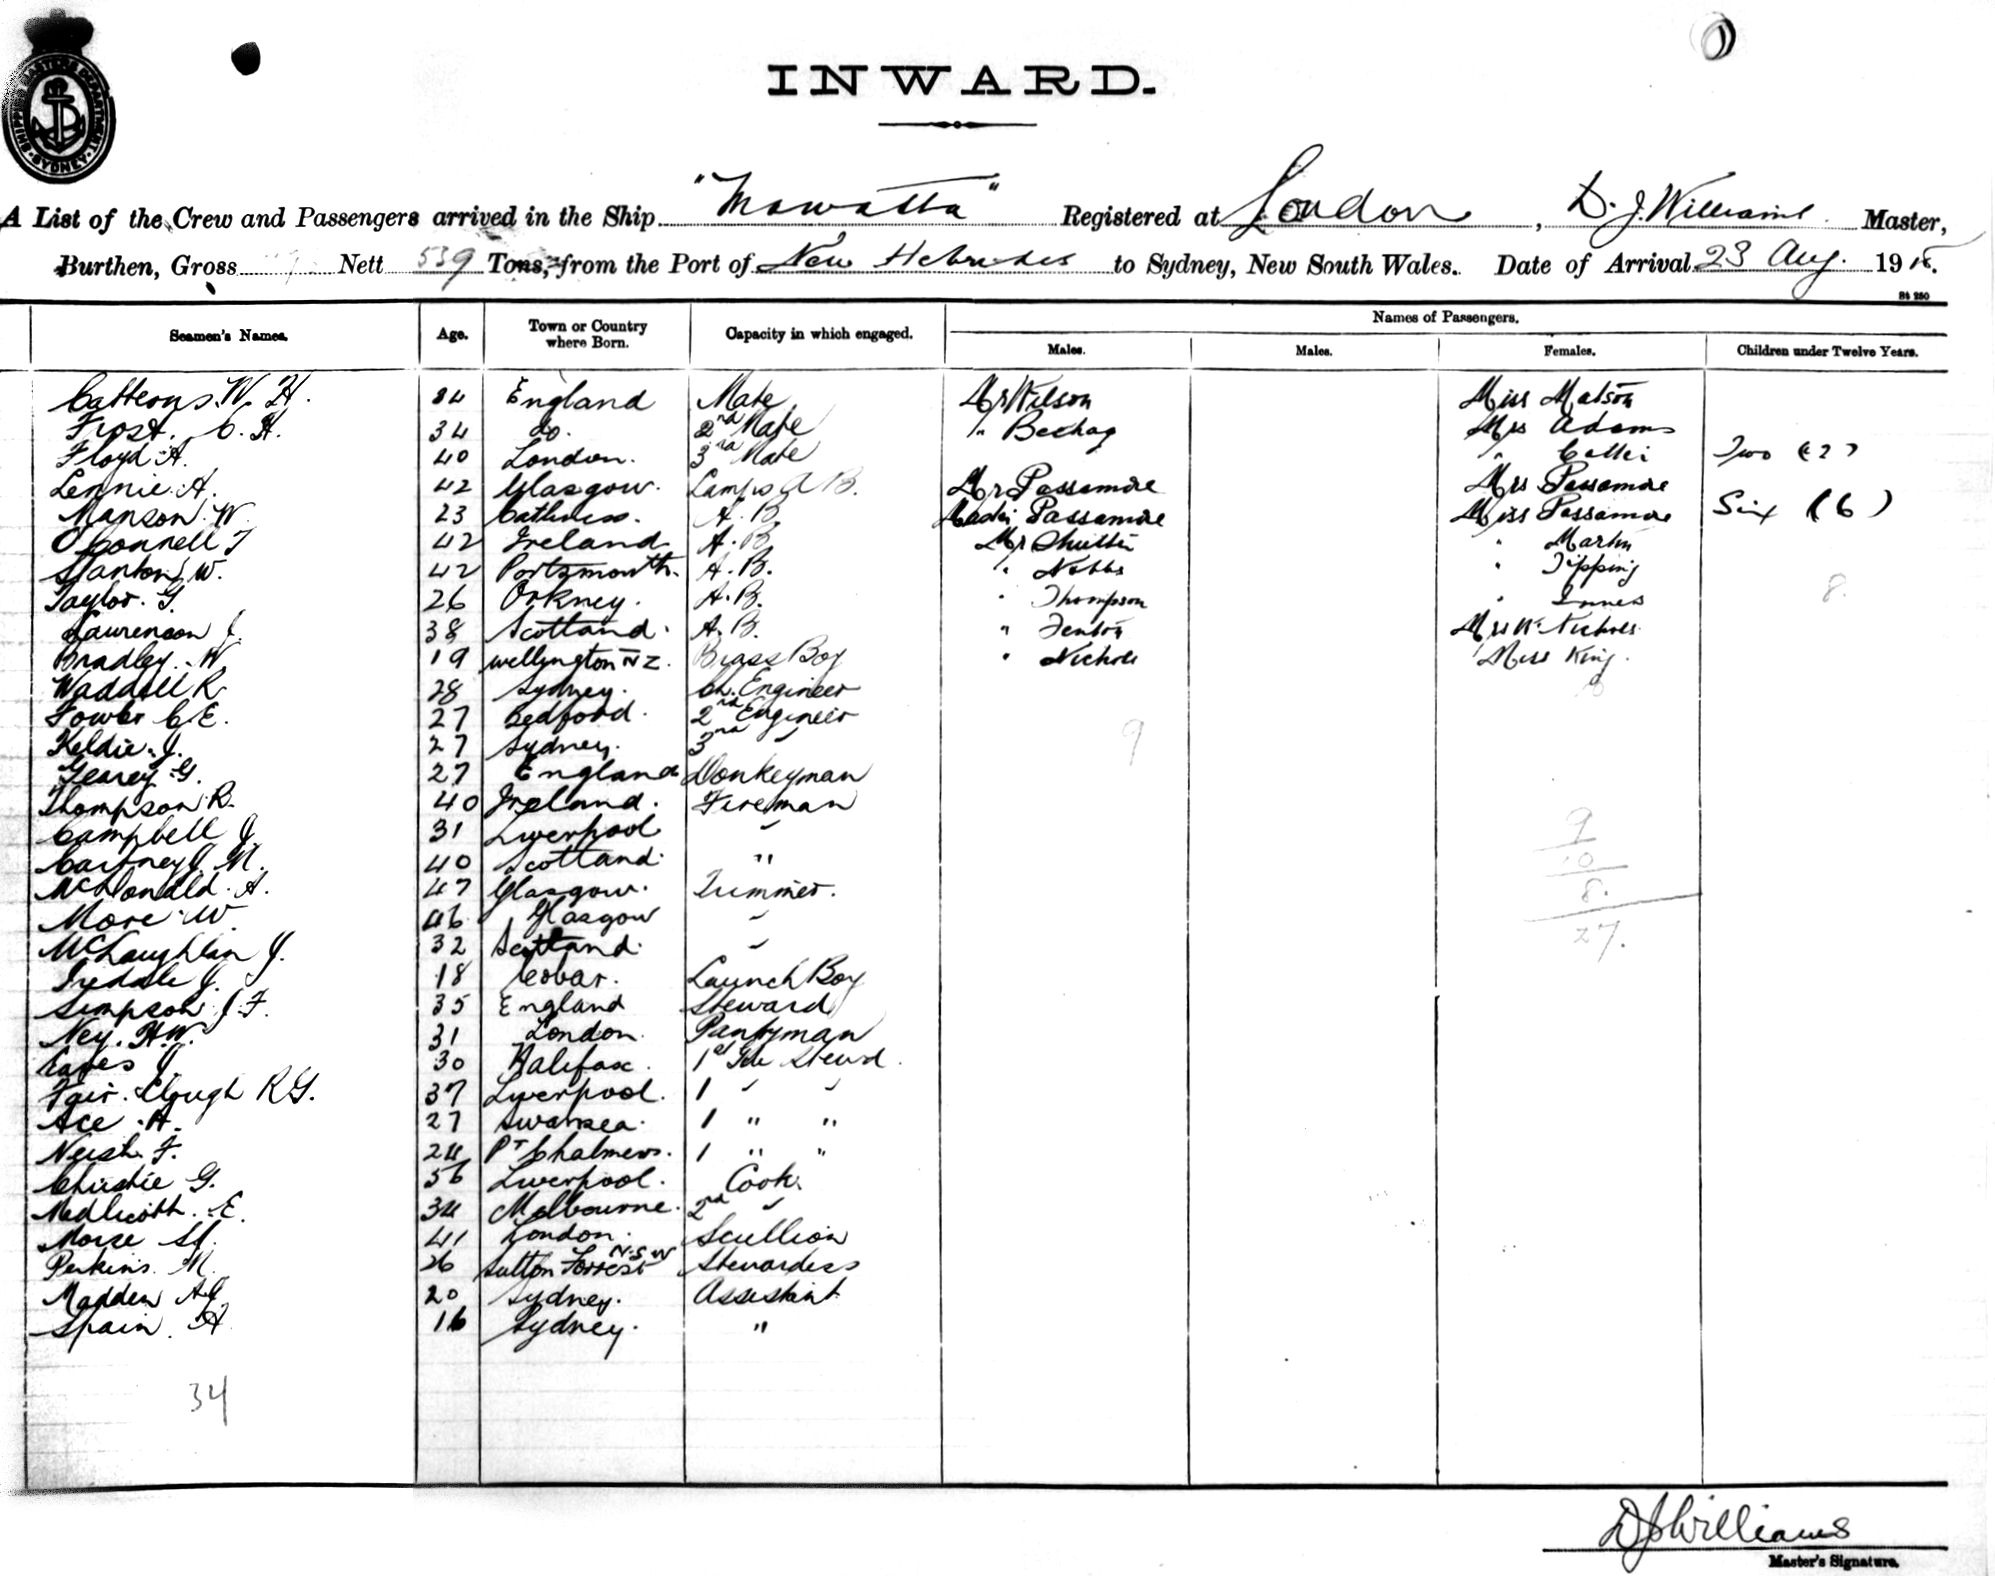 SHIPPING MASTERS DEPARTMENT. SYDNEY
INWARD.
A List of the Crew and Passengers arrived in the Ship "Mawatta" Registered at London, D. J. Williams Master,
Burthen, Gross Nett 539 Tons, from the Port of New Hebrides to Sydney, New South Wales. Date of Arrival 23 Aug. 1915.
St 250
Seamen's Names. Age. Town or Country where Born. Capacity in which engaged. Names of Passengers.
Males. Males. Females. Children under Twelve Years.
Catterns. W. H. 34 England Mate Mr Wilson Miss Matson
Frost. C. H. 34 do. 2nd Mate " Mrs Adams
Floyd. A. 40 London. 3rd Mate " Two (2)
Lennie. A. 42 Glasgow. Lamps A B. Mr Passamore Mrs Passamore
Manson. W. 23 Cathness. A. B. Passamore Miss Passamore Six (6)
O'Connell T 42 Ireland A. B Mr " Martin
Stanton W. 42 Portsmouth. A. B. " Nobbs " Tipping
Taylor. G. 26 Orkney. A. B. " Thompson " Innes 8.
Laurenson J. 38 Scotland. A. B. " Fenton Mrs Nichols
Bradley. W. 19 Wellington NZ. Brass Boy " Nichols Miss King.
Waddell R 28 Sydney. Ch. Engineer
Fowler C E. 27 Bedford. 2nd Engineer
Keldie. J. 27 Sydney. 3rd " 9
Gearey G. 27 England Donkeyman
Thompson R. 40 Ireland. Fireman
Campbell J 31 Liverpool " 9
Cartney J. M. 40 Scotland. " 10
McDonald. A. 47 Glasgow. Trimmer. 8.
More. W. 46 Glasgow "
McLaughlan J. 32 Scotland. " 27.
Iredale J. 18 Cobar. Launch Boy
Simpson J. F. 35 England Steward
Ney. H. W. 31 London. Pantryman
Eaves J. 30 Halifax. 1st Stewd.
Fair. Clough R G. 37 Liverpool. 1 " "
Ace. A. 27 Swansea. 1 " "
Neish F. 24 Pt Chalmers. 1 " "
Christie G. 56 Liverpool. Cook.
Medlicott. E. 34 Melbourne. 2nd "
Morse 41 London. Scullion
Perkins. M. 26 Sutton Forrest N.S.W Stewardess
Madden A. J. 20 Sydney. Assistant
Spain. A. 16 Sydney. "
34
D J Williams
Master's Signature.